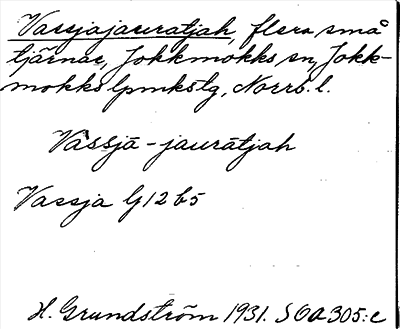 Vassjajauratjah, flera små
tjärnar, Jokkmokks sn, Jokk-
mokks lpmkstg, Norrb. l.
Vássjā-jaurātjah
Vassja G12 b5
H. Grundström 1931. SOA 305:c